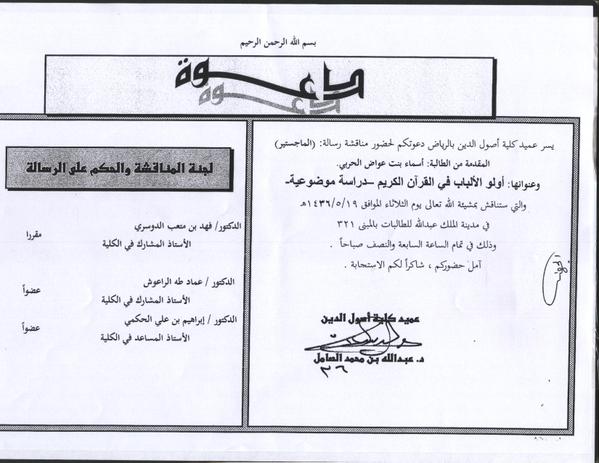 بسم الله الرحمن الرحيم
دعوة
يسر عميد كلية أصول الدين بالرياض دعوتكم لحضور مناقشة رسالة: (الماجستير)
المقدمة من الطالبة: أسماء بنت عواض الحربي.
وعنوانها: أولو الألباب في القرآن الكريم –دراسة موضوعية-
والتي ستناقش بمشيئة الله تعالى يوم الثلاثاء الموافق ١٤٣٦/٥/١٩هـ
في مدينة الملك عبدالله للطالبات بالمبنى ٣٢١
وذلك في تمام الساعة السابعة والنصف صباحاً .
آمل حضوركم ، شاكراً لكم الاستجابة .
عميد كلية أصول الدين
د. عبدالله بن محمد السامل
٣٦
لجنة المناقشة والحكم على الرسالة
الدكتور/ فهد بن متعب الدوسري
الأستاذ المشارك في الكلية
مقررا
الدكتور / عماد طه الراعوش
الأستاذ المشارك في الكلية
عضواً
الدكتور / إبراهيم بن علي الحكمي
الأستاذ المساعد في الكلية
عضواً